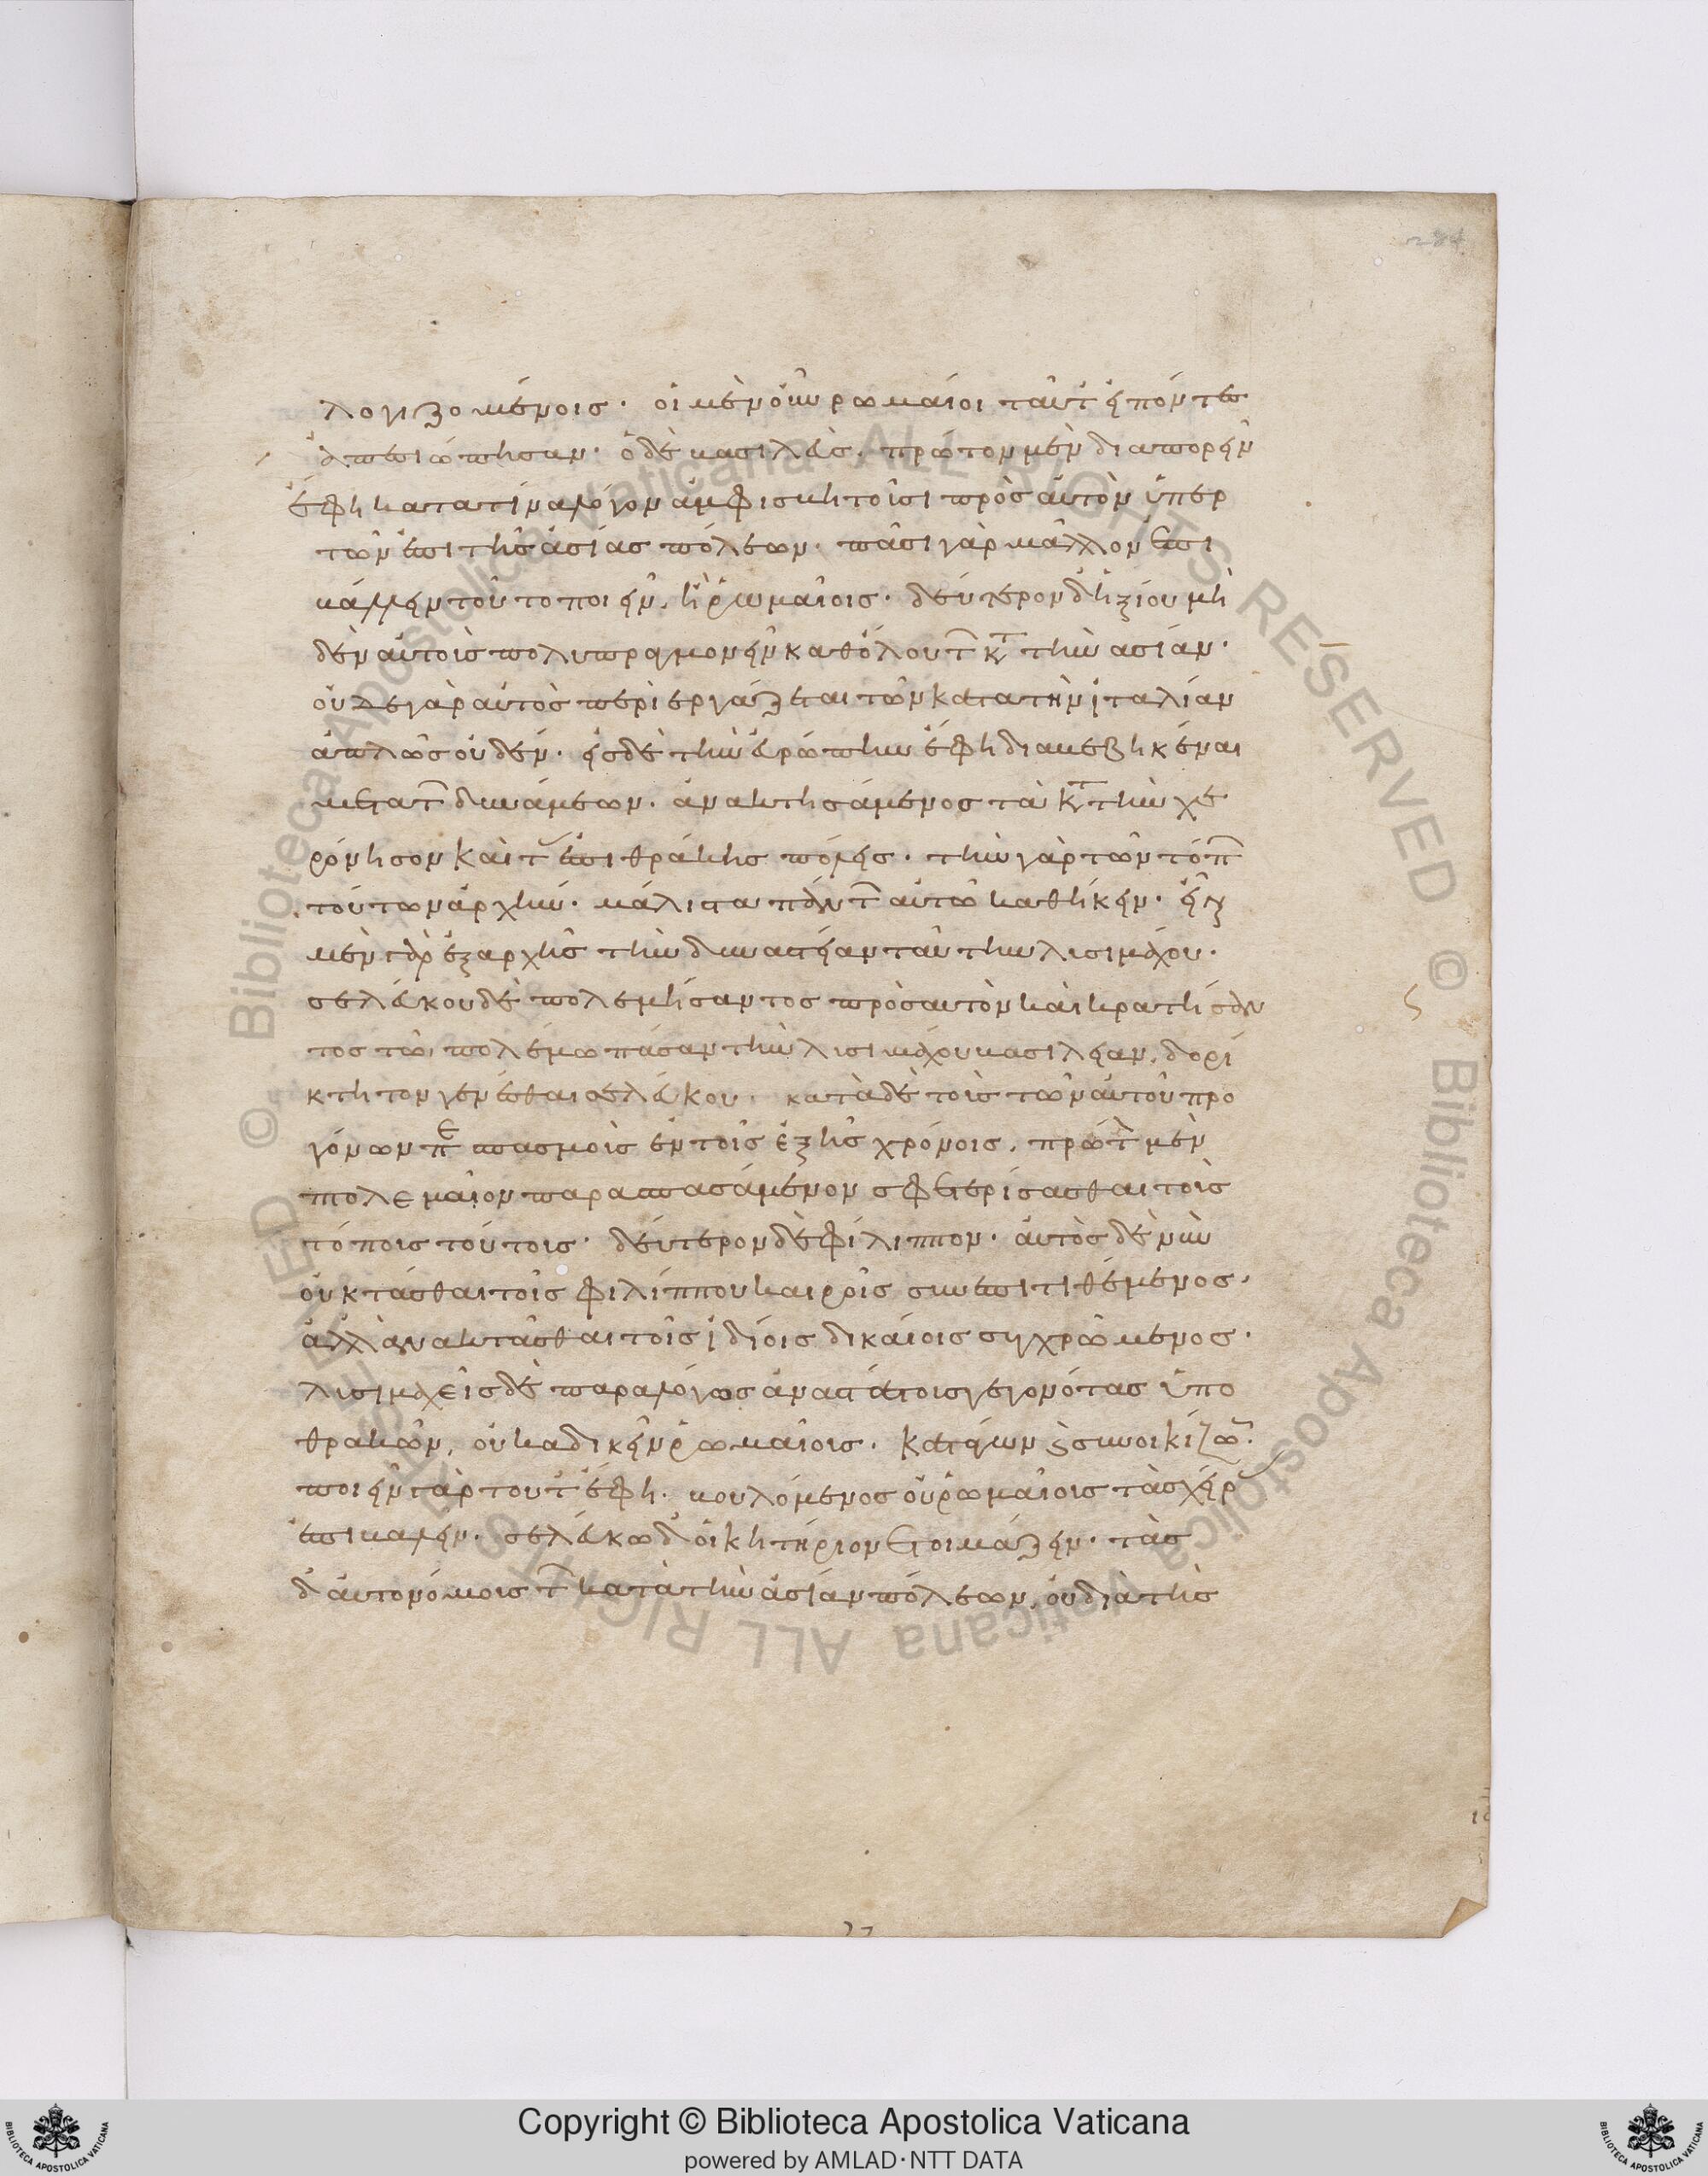 λογιζομένοις· οἱ μὲν οὖν ρωμαίοι ταῦτ εἰπόντεσ
ἀπεσιώπησαν· ὁ δὲ βασιλεὺς, πρῶτον μὲν διαπορεῖν
ἔφη κατα τίνα λόγον ἀμφισβητοῦσι πρὸς αὐτὸν ὑπερ
τῶν ἐπι τῆς ἀσίας πόλεων· πᾶσι γὰρ μᾶλλον ἐπι
βάλλειν τοῦτο ποιεῖν, ἢ ῥωμαίοις· δεύτερον δ ἠξίου μη
δὲν αὐτοὺς πολυπραγμονεῖν καθόλου τ κτ τὴν ασίαν·
οὐδε γὰρ αὐτὸς περιεργάζεται τῶν κατα τὴν ἰταλίαν
ἁπλῶς οὐδέν· εἰς δὲ τὴν εὐρώπην ἔφη διαβεβηκέναι
μετα τ δυνάμεων, ἀνακτησάμενος τὰ κτ τὴν χε
ρόνησον καὶ τ ἐπι θράκης πόλεις· τὴν γὰρ τῶν τόπ
τούτων ἀρχὴν, μάλιστα πάντ αὐτῶ καθήκειν· εἶναι
μὲν γὰρ ἐξαρχῆς τὴν δυναστείαν ταύτην λισιμάχου·
σελεύκου δὲ πολεμήσαντος πρὸς αυτὸν καὶ κρατήσαν
τος τῶ πολέμω πάσαν τὴν λισιμάχου βασιλείαν, δορί
κτητον γενέσθαι σελεύκου· κατὰ δὲ τοὺς τῶν αὐτοῦ προ
γόνων πεσπασμοὺς ἐν τοῖς ἑξῆς χρόνοις, πρῶτ μὲν
πτολεμαῖον παρασπασάμενον σφετερίσασθαι τοὺς
τόπους τούτους· δεύτερον δὲ φίλιππον· αὐτὸς δὲ νῦν
οὐ κτάσθαι τοῖς φιλίππου καιροῖς συνεπιτιθέμενος·
ἀλλ ἀνακτᾶσθαι τοῖς ἰδίοις δικαίοις συγχρώμενος·
λισιμαχεῖς δὲ παραλόγως ἀναστάτους γεγονότας ὑπο
θρακῶν, οὐκ αδικεῖν ῥωμαίους. κατάγων ϛ συνοικίζω
ποιεῖν γὰρ τουτ ἔφη, βουλόμενος οὐ ῥωμαίοις τὰς χεῖρ
ἐπιβαλεῖν. σελεύκω δ οἰκητήριον ἑτοιμάζειν· τὰς
δ αὐτονόμους τ κατὰ τὴν ἀσίαν πόλεων, οὐ διὰ τῆς
Copyright © Biblioteca Apostolica Vaticana
powered by AMLAD·NTT DATA